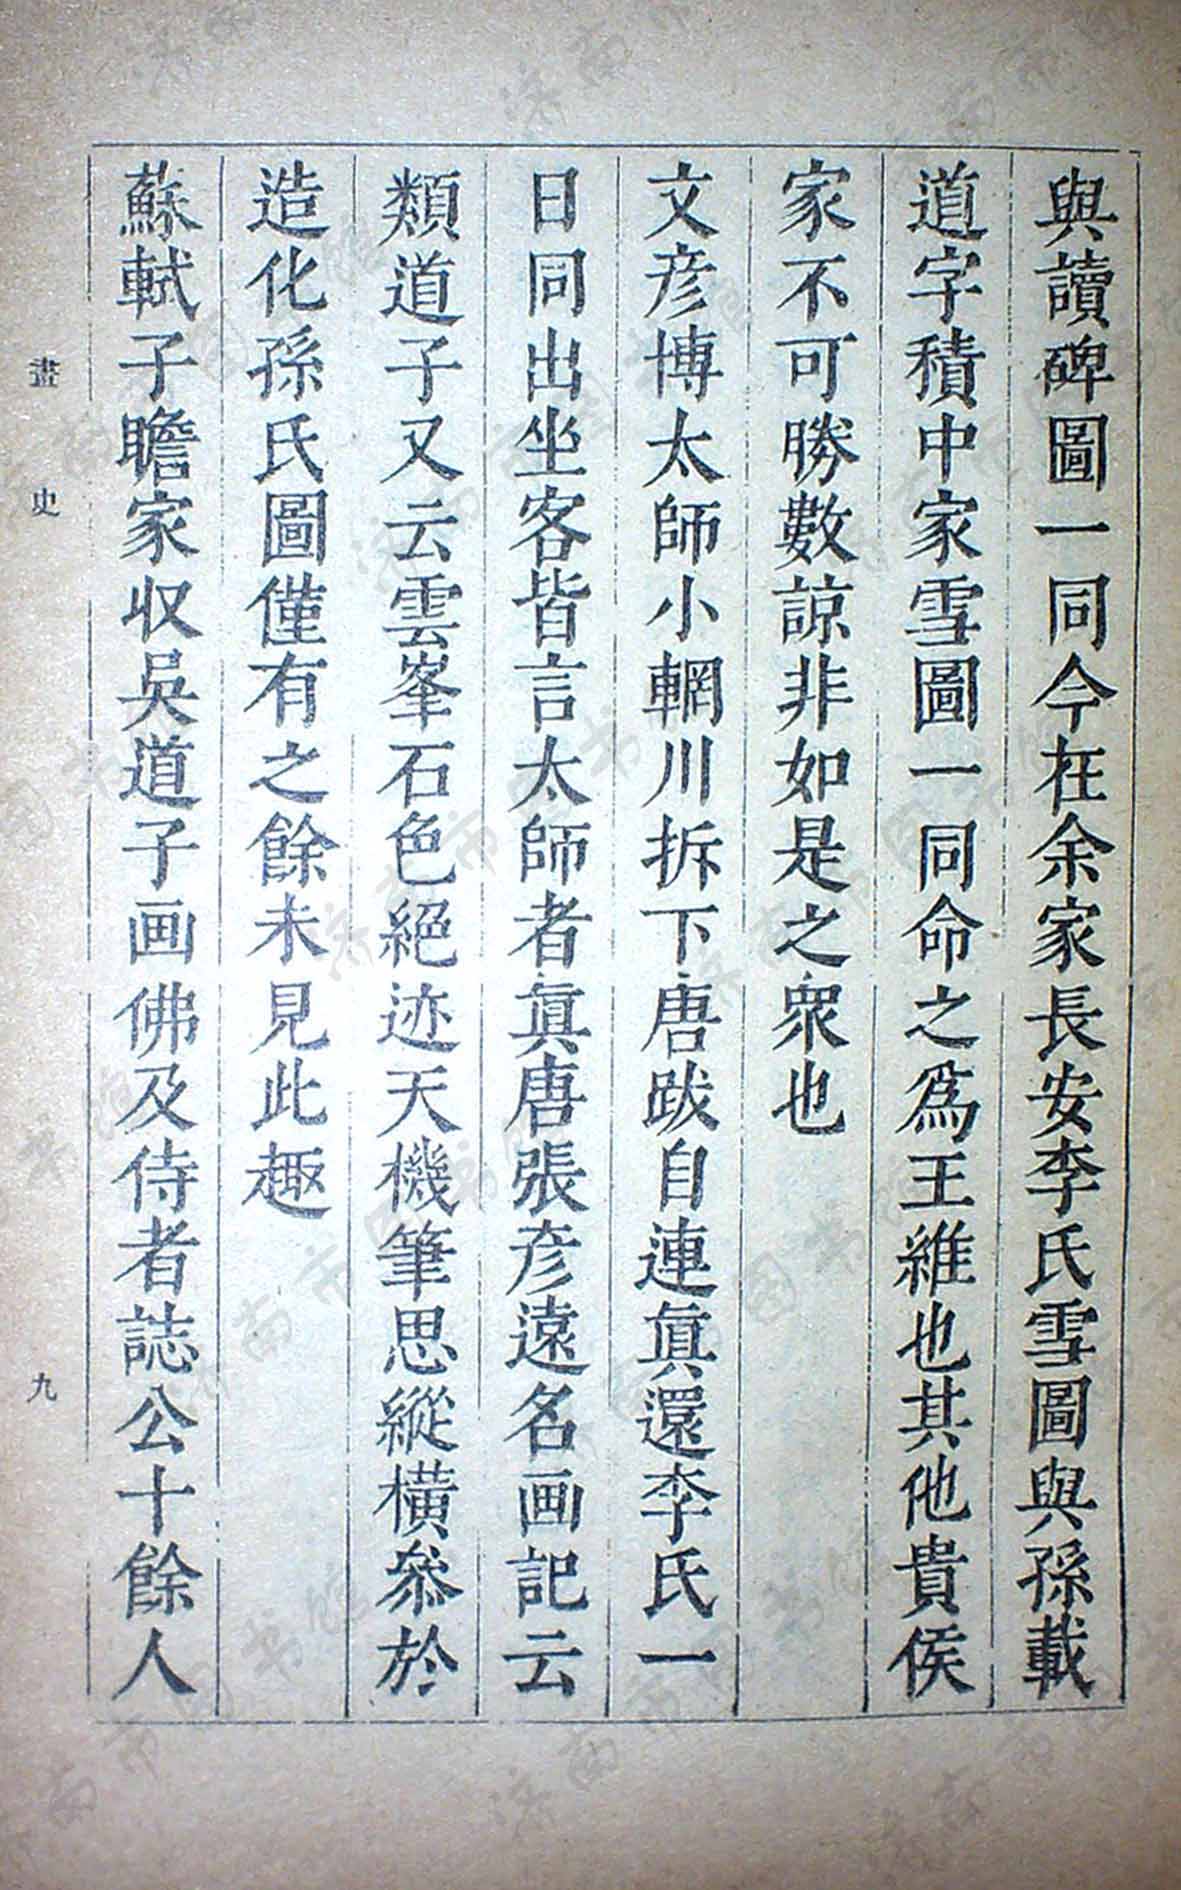 與讀碑圖一同今在余家長安李氏雪圖與孫載
道字積中家雪圖一同命之爲王維也其他貴侯
家不可勝數諒非如是之衆也
文彥博太師小輞川拆下唐跋自連眞還李氏一
日同出坐客皆言太師者眞唐張彥遠名画記云
類道子又云雲峯石色絕迹天機筆思縱橫叅於
造化孫氏圖僅有之餘未見此趣
蘇軾子瞻家収吳道子画佛及侍者誌公十餘人
畫史
九
济南市图书馆